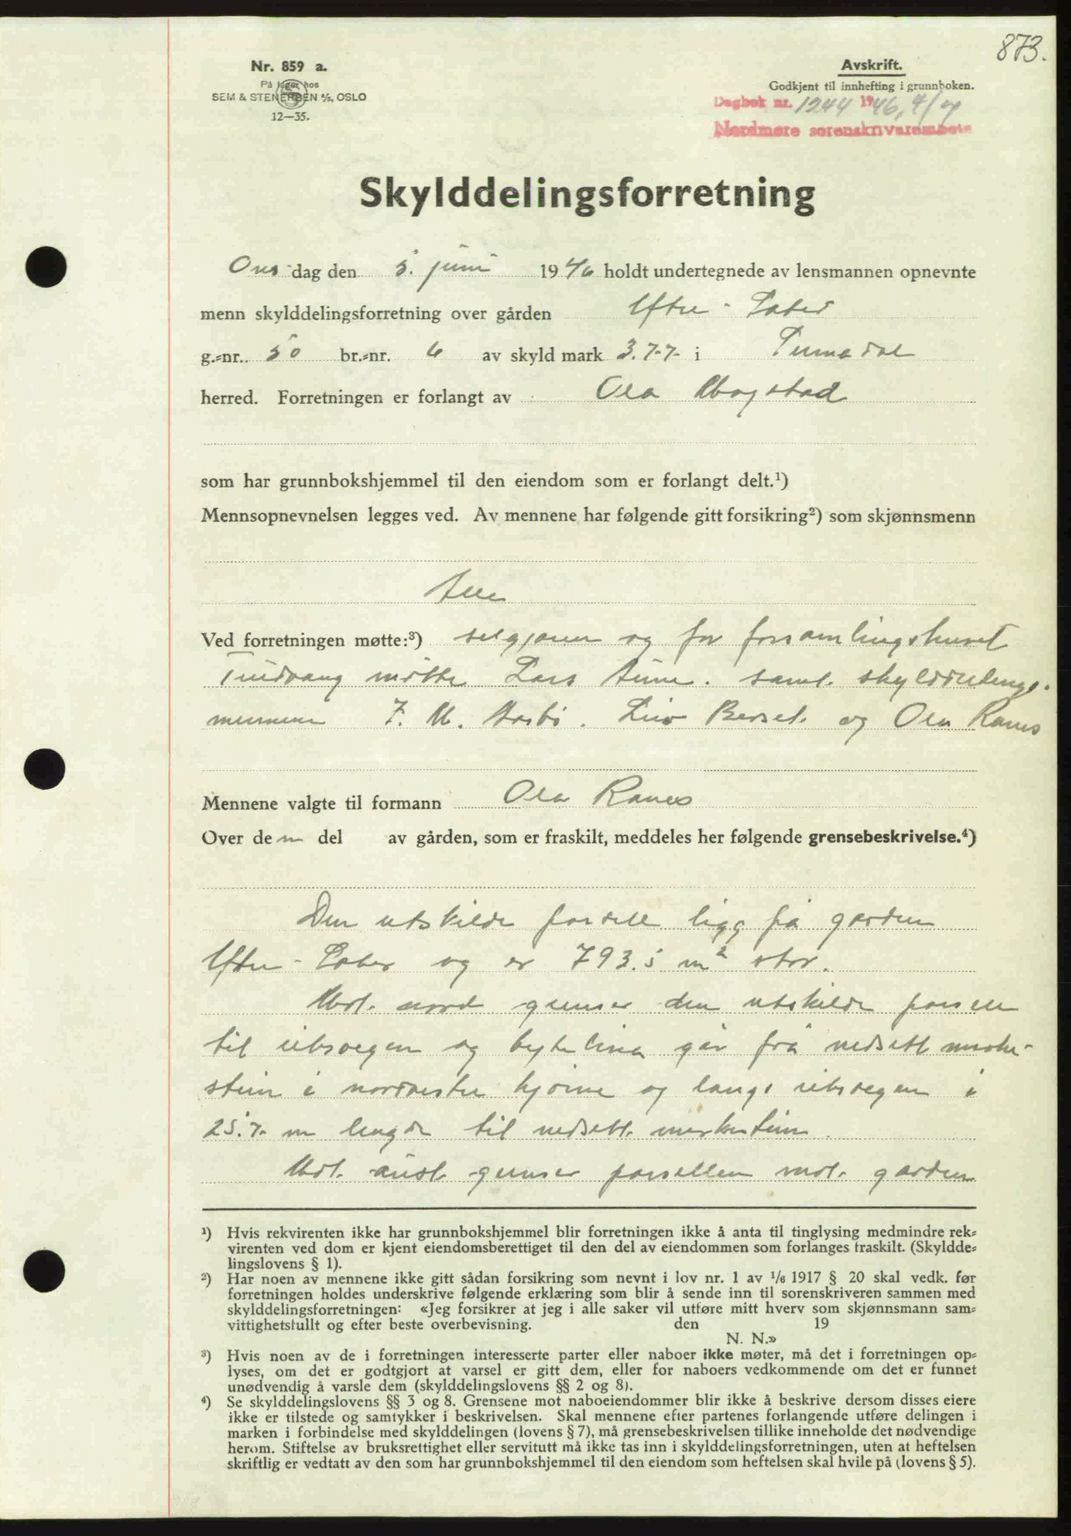 873.
Nr. 859 a.
På lager hos
SEM & STENERSEN A/S, OSLO
12—35.
Avskrift.
Godkjent til innhefting i grunnboken.
Dagbok nr. 1244 1946, 4/7
Nordmøre sorenskriverembete
Skylddelingsforretning
Ons dag den 5. juni 1946 holdt undertegnede av lensmannen opnevnte
menn skylddelingsforretning over gården Yttre-
g.=nr. 50 br.=nr. 6 av skyld mark 3.77 i
herred. Forretningen er forlangt av Ola
som har grunnbokshjemmel til den eiendom som er forlangt delt.¹)
Mennsopnevnelsen legges ved. Av mennene har følgende gitt forsikring²) som skjønnsmenn
Alle
Ved forretningen møtte:³) og for forsamlingshuset
møtte Lars samt skylddelings-
mennene og Ola Ranes
Mennene valgte til formann Ola Ranes
Over den del av gården, som er fraskilt, meddeles her følgende grensebeskrivelse.⁴)
Den utskilde parsell ligg på garden
Yttre- og er 793.5 m² stor.
Mot nord grenser den utskilde parsell
til og bytelina går frå nedsett merke-
stein i nordvestre hjørne og langs i
25.7 m lengde til nedsett merkestein.
Mot aust grenser parsellen mot garden
¹) Hvis rekvirenten ikke har grunnbokshjemmel blir forretningen ikke å anta til tinglysing medmindre rek=
virenten ved dom er kjent eiendomsberettiget til den del av eiendommen som forlanges fraskilt. (Skyldde=
lingslovens § 1).
²) Har noen av mennene ikke gitt sådan forsikring som nevnt i lov nr. 1 av ¹/₆ 1917 § 20 skal vedk. før
forretningen holdes underskrive følgende erklæring som blir å sende inn til sorenskriveren sammen med
skylddelingsforretningen: «Jeg forsikrer at jeg i alle saker vil utføre mitt hverv som skjønnsmann sam=
vittighetsfullt og efter beste overbevisning. den 19
N. N.»
³) Hvis noen av de i forretningen interesserte parter eller naboer ikke møter, må det i forretningen op=
lyses, om det er godtgjort at varsel er gitt dem, eller for naboers vedkommende om det er funnet
unødvendig å varsle dem (skylddelingslovens §§ 2 og 8).
⁴) Se skylddelingslovens §§ 3 og 8. Grensene mot naboeiendommer blir ikke å beskrive dersom disses eiere
ikke er tilstede og samtykker i beskrivelsen. Skal mennene efter partenes forlangende utføre delingen i
marken i forbindelse med skylddelingen (lovens § 7), må grensebeskrivelsen tillike inneholde det nødvendige
herom. Stiftelse av bruksrettighet eller servitutt må ikke tas inn i skylddelingsforretningen, uten at heftelsen
skriftlig er vedtatt av den som har grunnbokshjemmel til den eiendom som heftelsen skal hvile på (lovens § 5).